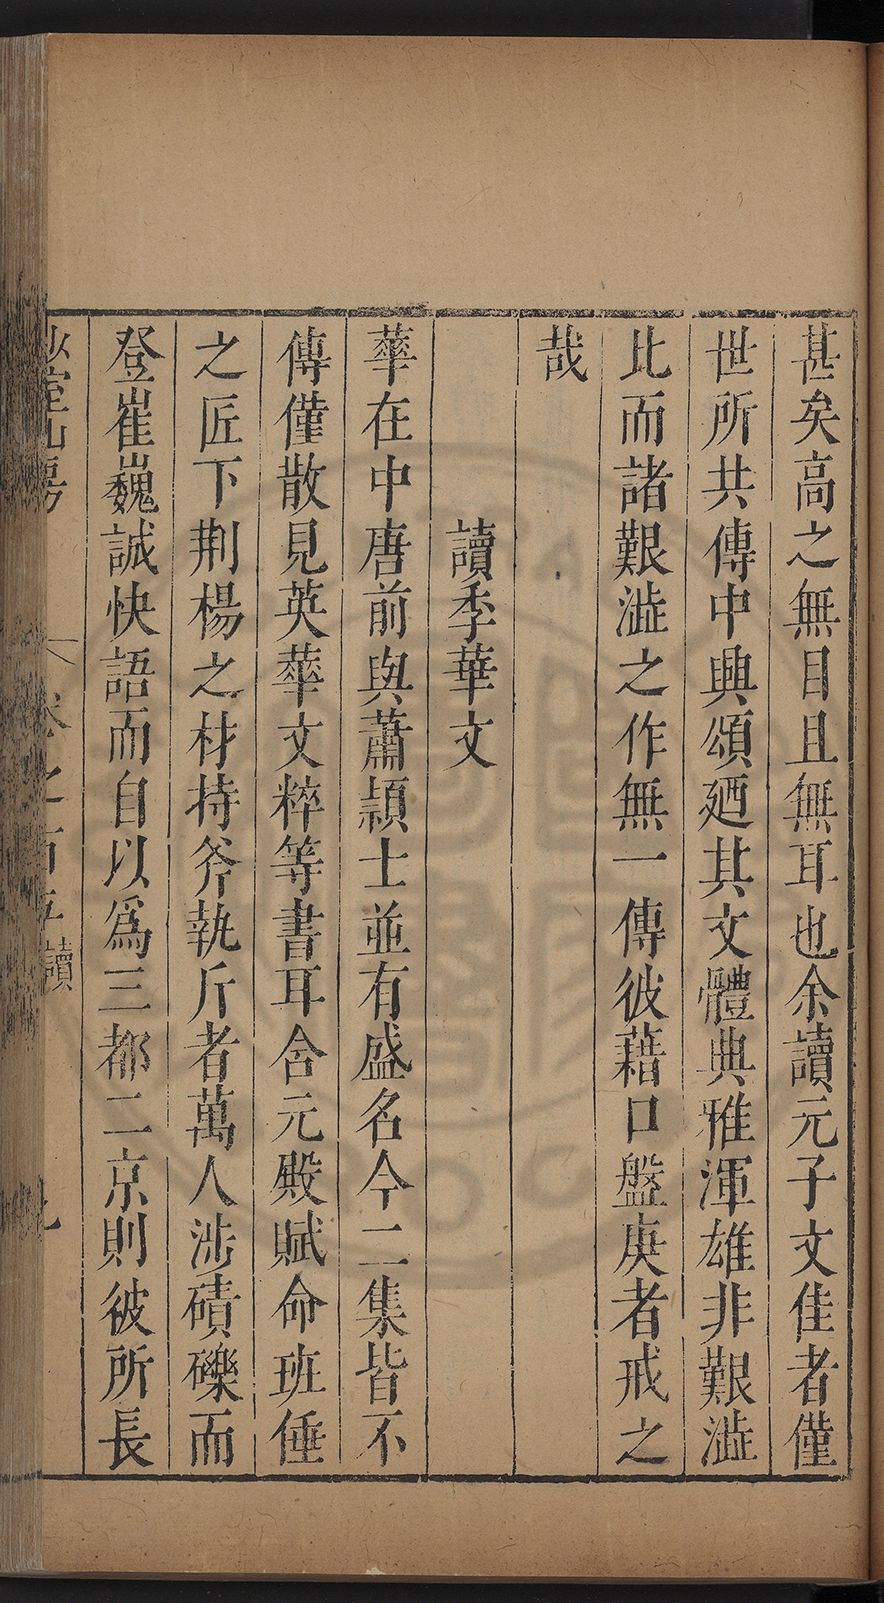 甚矣高之無目且無耳也余讀元子文佳者僅
世所共傳中興頌廼其文體典雅渾雄非艱澁
比而諸艱澁之作無一傳彼藉口盤庚者戒之
哉
讀李華文
華在中唐前與蕭頴士並有盛名今二集皆不
傳僅散見英華文粹等書耳含元殿賦命班倕
之匠下荆楊之材持斧執斤者萬人涉磧礫而
登崔巍誠快語而自以爲三都二京則彼所長
室山房
卷之百五 讀
九